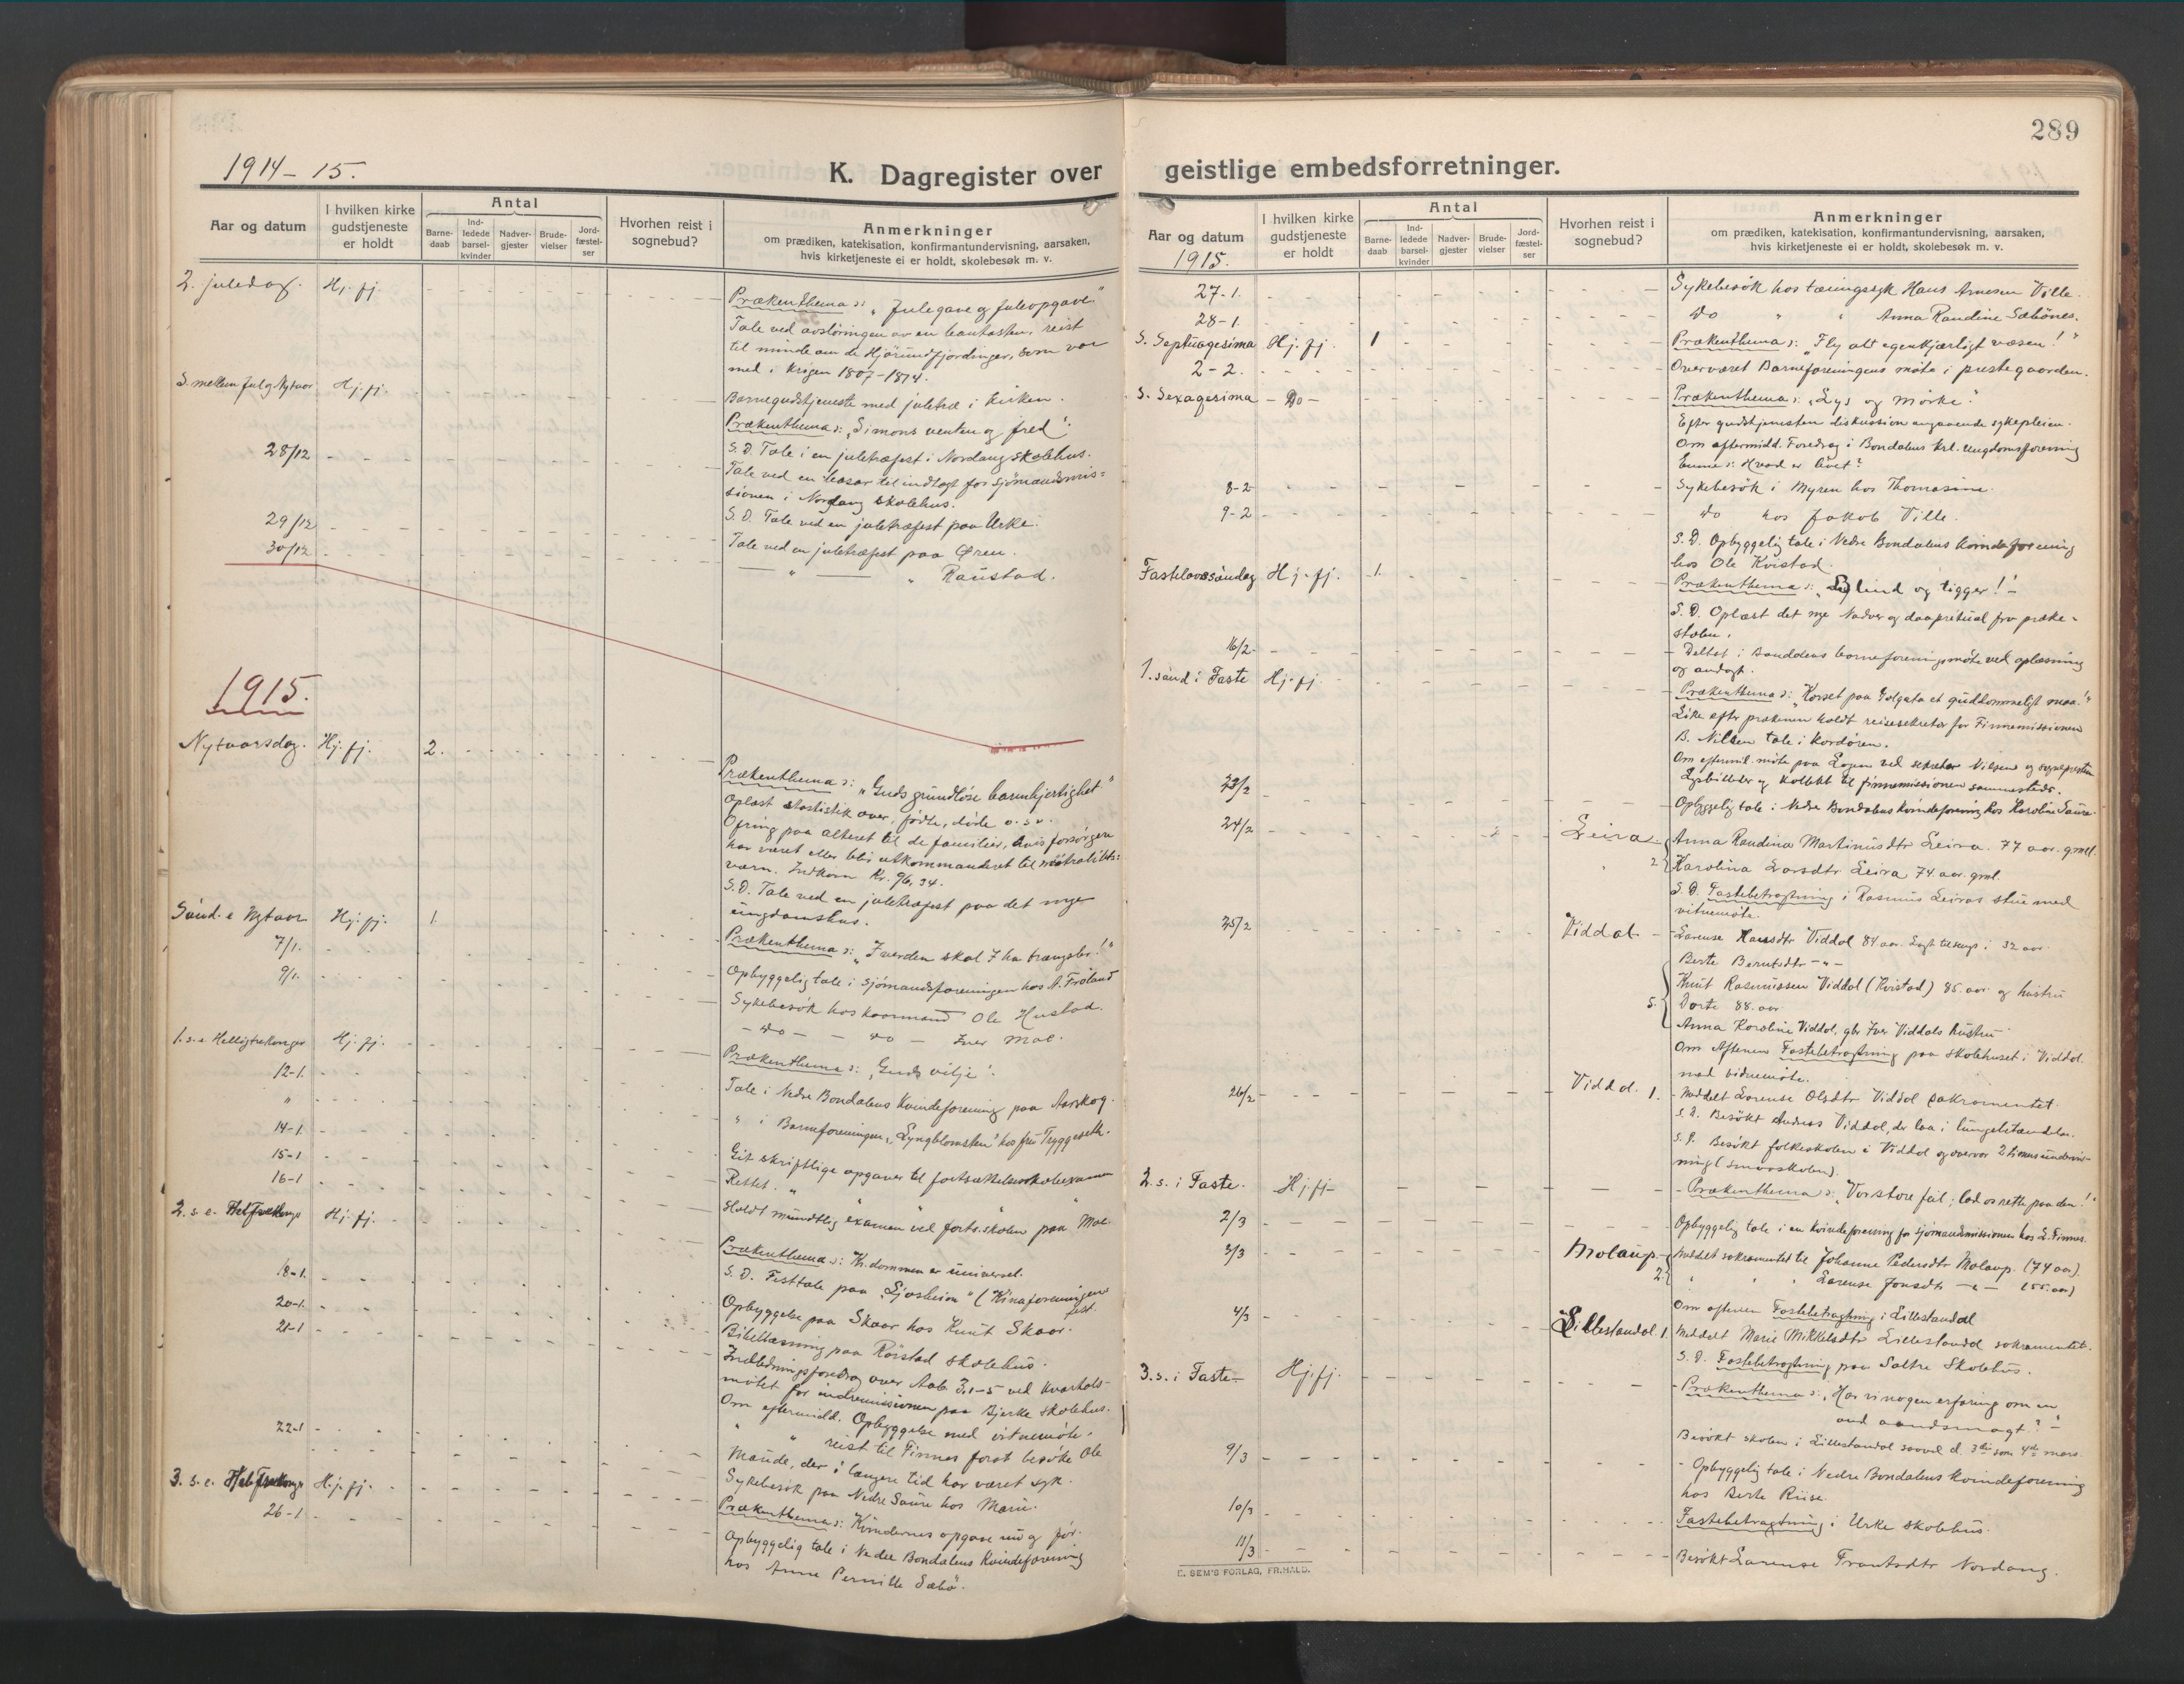 1914-15.
K. Dagregister over
Aar og datum
I hvilken kirke gudstjeneste er holdt
Antal
Barne-daab
Ind-ledede barsel-kvinder
Nadver-gjester
Brude-vielser
Jord-fæstel-ser
Hvorhen reist i sognebud?
Anmerkninger
om prædiken, katekisation, konfirmantundervisning, aarsaken,
hvis kirketjeneste ei er holdt, skolebesøk m. v.
2. juledag. Hj. fj.
Prækenthema ɔ: „Julegave og juleopgave"
Tale ved avsløringen av en bautasten, reist
til minde om de Hjørundfjordinger, som var
med i krigen 1807-1814.
S. mellem jul og Nytaar Hj. fj.
Barnegudstjeneste med juletræ i kirken.
Prækenthema ɔ: „Simons venten og fred".
S. D. Tale i en juletræfest i Nordang skolehus.
28/12
Tale ved en basar til indtægt for sjømandsmis=
sionen i Nordang skolehus.
S. D. Tale ved en juletræfest paa Urke.
29/12
Tale ved en juletræfest paa Øren.
30/12
— " — " Raustad.
1915.
Nytaarsdag. Hj. fj. 2.
Prækenthema ɔ: „Guds grundløse barmhjertighet"
Oplæst statistik over, fødte, døde o. s. v.
Ofring paa alteret til de familier, hvis forsørgere
har været eller blir utkommanderet til nøitralitets=
værn. Indkom Kr. 96,34.
S. D. Tale ved en juletræfest paa det nye
ungdomshus.
Sønd. e Nytaar Hj. fj. 1.
Prækenthema ɔ: „I verden skal I ha trængsler!"
7/1.
Opbyggelig tale i sjømandsforeningen hos A. Frøland
9/1.
Sykebesøk hos kaarmand Ole Hustad.
— Do — Do — Iver Moe.
1. s. e. Helligtrekonger Hj. fj.
Prækenthema ɔ: „Guds vilje".
12-1.
Tale i Nedre Bondalens Kvindeforening paa Aarskog.
"
" i Barneforeningen „Lyngblomsten" hos fru Tryggeseth.
14-1.
Git skriftlige opgaver til fortsættelsesskoleexamen
15-1
Rettet " " "
16-1
Holdt mundtlig examen ved forts.skolen paa Moe.
2. s. e. Hel Trekonger Hj. fj.
Prækenthema ɔ: Kr.dommen er universel.
S. D. Festtale paa „Ljosheim" (Kinaforeningens fest.
18-1.
Opbyggelse paa Skaar hos Knut Skaar.
20-1.
Bibellæsning paa Røistad skolehus.
21-1
Indledningsforedrag over Aab. 3,1-5 ved kvartals-
møtet for indremissionen paa Bjerke skolehus.
Om eftermidd. Opbyggelse med vitnemøte.
" " reist til Finnes forat besøke Ole
Maude, der i længere tid har været syk.
22-1
Sykebesøk paa Nedre Saure hos Marie.
3. s. e. Hel Trekonger Hj. fj.
Prækenthema ɔ: Kvindernes opgave nu og før.
26-1
Opbyggelig tale i Nedre Bondalens Kvindeforening
hos Anne Pernille Sæbø.
289
geistlige embedsforretninger.
Aar og datum
1915.
I hvilken kirke gudstjeneste er holdt
Antal
Barne-daab
Ind-ledede barsel-kvinder
Nadver-gjester
Brude-vielser
Jord-fæstel-ser
Hvorhen reist i sognebud?
Anmerkninger
om prædiken, katekisation, konfirmantundervisning, aarsaken,
hvis kirketjeneste ei er holdt, skolebesøk m. v.
27-1. Sykebesøk hos tæringssyk Hans Arnesen Ville.
28-1. Do " " Anna Randine Sæbønes.
S. Septuagesima Hj. fj. 1 Prækenthema ɔ: „Fly alt egenkjærligt væsen!"
2-2. Overværet Barneforeningens møte i prestegaarden.
S. Sexagesima — Do — Prækenthema ɔ: „Lys og mørke."
Efter gudstjenesten diskussion angaaende sykepleien.
Om eftermidd. Foredrag i Bondalens krl. ungdomsforening
Emne ɔ: Hvad er livet?
8-2 Sykebesøk i Myren hos Thomasine.
9-2 Do hos Jakob Ville.
S. D. Opbyggelig tale i Nedre Bondalens kvindeforening
hos Ole Kvistad.
Fastelavnsøndag Hj. fj. 1. Prækenthema ɔ: „Blind og tigger!"
S. D. Oplæst det nye Nadver og daapsritual fra præke-
stolen.
16/2. Deltat i Sanddens barneforeningsmøte ved oplæsning
og andagt.
1. sønd i Faste Hj. fj. Prækenthema ɔ: „Korset paa Golgata et guddommeligt maa!"
Like efter prækenen holdt reisesekretær for Finnemissionen
B. Nilsen tale i kordøren.
Om eftermd. møte paa Løgen ved sekretær Nilsen og sognepresten
Lysbilleder og kollekt til finnemissionen sammesteds.
23/2 Opbyggelig tale i Nedre Bondalens kvindeforening hos Karoline Saure.
24/2 Leira 2 Anna Randina Martinusdtr Leira. 77 aar. gml.
Karolina Larsdtr Leira 74 aar. gml.
S. D. Fastebetragtning i Rasmus Leiras stue med
vitnemøte.
25/2 Viddal 5. Larense Hansdtr Viddal 84 aar. Lagt tilsengs i 32 aar.
Berte Berntsdtr — " —
Knut Rasmussen Viddal (Kvistad) 85. aar og hustru
Dorte 88. aar.
Anna Karoline Viddal, gbr Iver Viddals hustru
Om Aftenen Fastebetragtning paa skolehuset i Viddal.
med vidnemøte.
26/2 Viddal. 1. Meddelt Larense Olsdtr Viddal sakramentet.
S. D. Besøkt Andreas Viddal, der laa i lungebetændelse.
S. D. Besøkt folkeskolen i Viddal og overvar 2 timers undervis-
ning (smaaskolen).
2. s. i Faste. Hj. fj. Prækenthema ɔ: „Vor store feil; lad os rette paa den!"
2/3 Opbyggelig tale i en kvindeforening for sjømandsmissionen hos L. Finnes.
3/3 Molaup 2. Meddelt sakramentet til Johanne Pedersdtr Molaup. (74 aar).
" " " Larense Jonsdtr — " — (55. aar)
Om aftenen Fastebetragtning i Lillestandal
4/3 Lillestandal 1. Meddelt Marie Mikkelsdtr Lillestandal sakramentet.
S. D. Fastebetragtning paa Saltre Skolehus.
3. s. i Faste Hj. fj. Prækenthema ɔ: „Har vi nogen erfaring om en
ond aandsmagt?"
Besøkt skolen i Lillestandal saavel d. 3die som 4de mars.
9/3 Opbyggelig tale i Nedre Bondalens kvindeforening
hos Berte Riise.
10/3 Fastebetragtning i Urke skolehus.
11/3 Besøkt Larense Frantsdtr Nordang.
E. SEM'S FORLAG, FR.HALD.